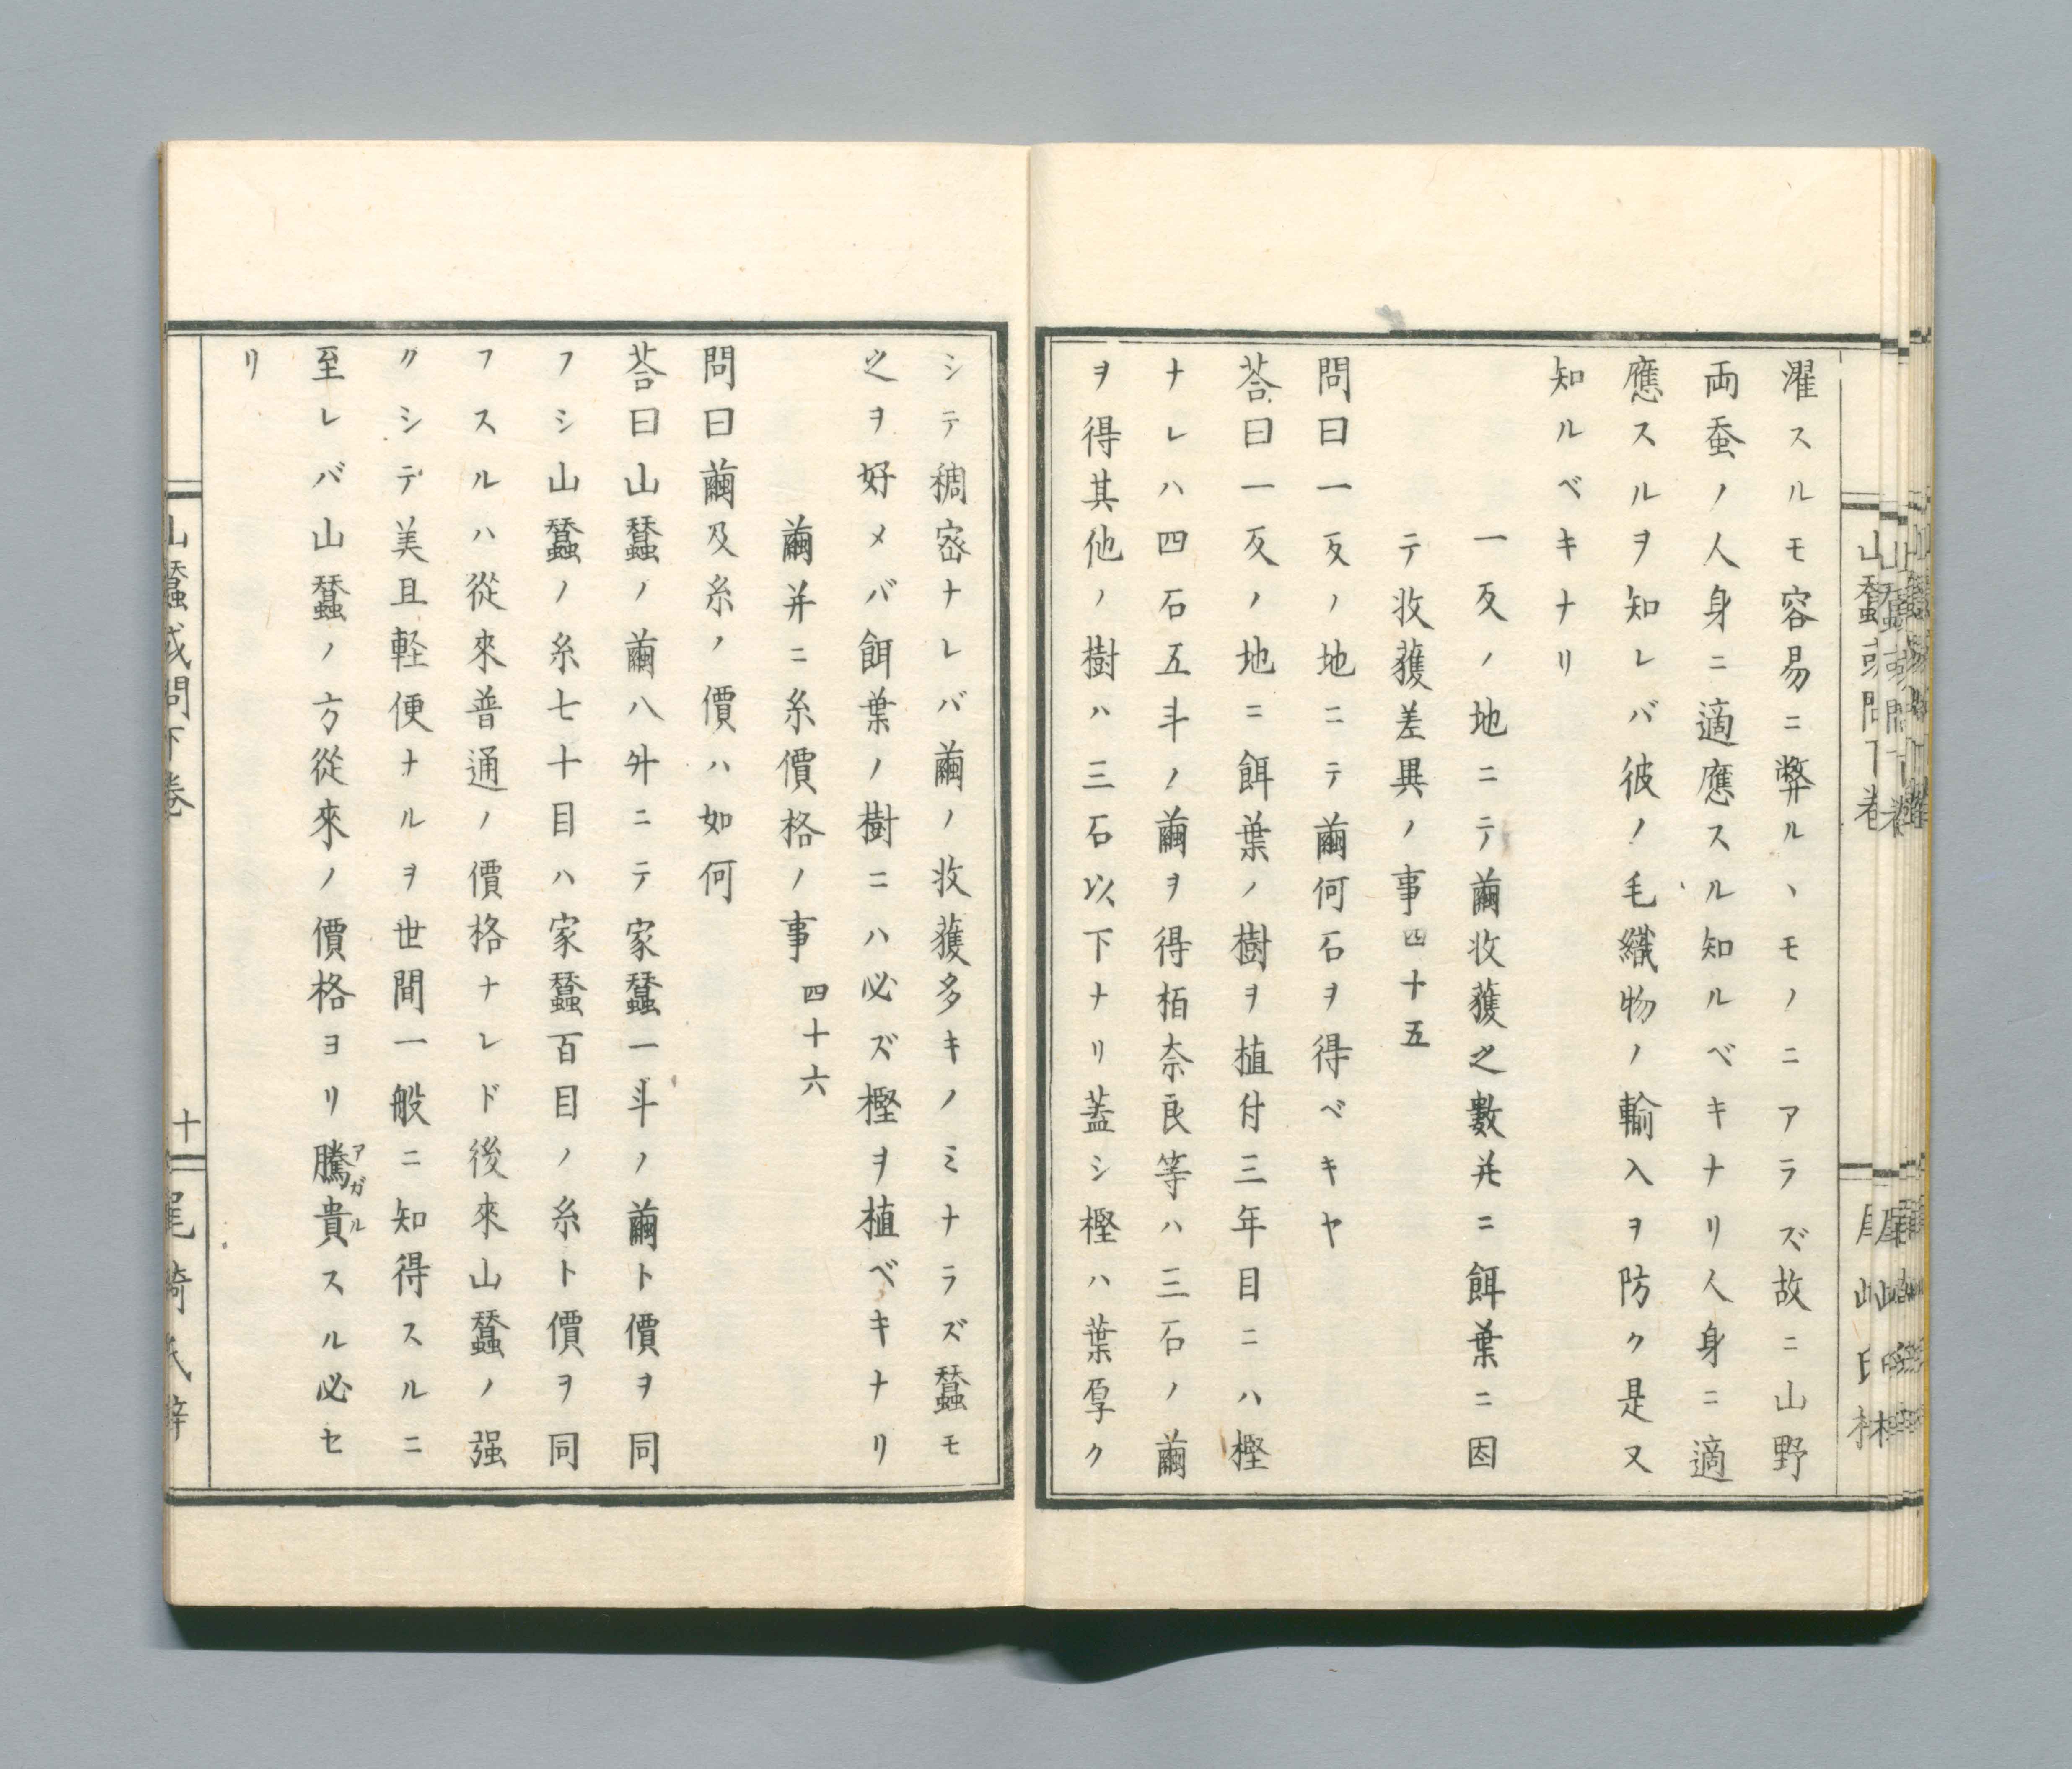 濯スルモ容易ニ弊ルヽモノニアラズ故ニ山野
両蚕ノ人身ニ適應スル知ルベキナリ人身ニ適
應スルヲ知レバ彼ノ毛織物ノ輸入ヲ防ク是又
知ルベキナリ
一反ノ地ニテ繭收獲之數幷ニ餌葉ニ因
テ收獲差異ノ事四十五
問曰一反ノ地ニテ繭何石ヲ得ベキヤ
荅曰一反ノ地ニ餌葉ノ樹ヲ植付三年目ニハ樫
ナレハ四石五斗ノ繭ヲ得栢奈良等ハ三石ノ繭
ヲ得其他ノ樹ハ三石以下ナリ蓋シ樫ハ葉厚ク
シテ稠宻ナレバ繭ノ收獲多キノミナラズ蠶モ
之ヲ好メバ餌葉ノ樹ニハ必ズ樫ヲ植ベキナリ
繭并ニ糸價格ノ事 四十六
問曰繭及糸ノ價ハ如何
荅曰山蠶ノ繭八升ニテ家蠶一斗ノ繭ト價ヲ同
フシ山蠶ノ糸七十目ハ家蠶百目ノ糸ト價ヲ同
フスルハ從來普通ノ價格ナレド後來山蠶ノ强
クシテ美且軽便ナルヲ世間一般ニ知得スルニ
至レバ山蠶ノ方從來ノ價格ヨリ騰貴アガルスル必セ
リ
山蠶或問下巻
十
尾﨑氏梓